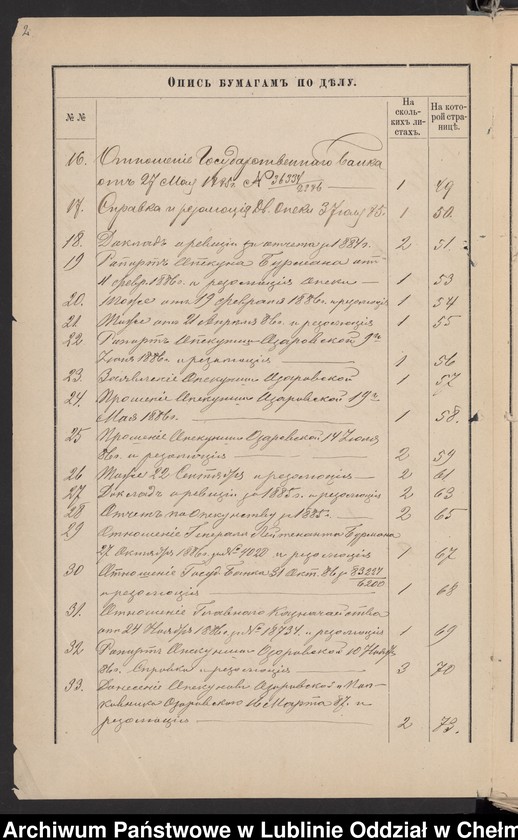 2
Опись бумагамъ по дѣлу.
№№
На скольких листахъ.
На которой страницѣ.
16. Отношеніе Государственнаго банка
отъ 27 Мая 1885г. № 36334/2276 1 49
17. Справка и резолюція Дв. опеки 3 Іюля 85. 1 50.
18. Докладъ о ревизіи отчета за 1884г. 2 51
19 Рапортъ Опекуна Бурмана отъ
11 февр. 1886г. и резолюція опеки 1 53
20. Тоже отъ 19 февраля 1886г. и резолюція 1 54
21. Тоже отъ 21 Апреля 86г. и резолюція 1 55
22 Рапортъ Опекунши Озаровской 9го
Іюня 1886г. и резолюція 1 56
23. Заявленіе Опекунши Озаровской 1 57
24. Прошеніе Опекунши Озаровской 19го
Мая 1886г. 1 58.
25 Прошеніе Опекунши Озаровской 14 Іюня
86г. и резолюція 2 59
26 Тоже 22 Сентября и резолюція 2 61
27 Докладъ о ревизіи за 1885г. и резолюція 2 63
28 Отчетъ по Опекунству за 1885г. 2 65
29 Отношеніе Генерала Лейтенанта Бурмана
27 Октября 1886г. за № 4028 и резолюція 1 67
30 Отношеніе Госуд. Банка 31 Окт. 86 за 83227/6200
и резолюція 1 68
31. Отношеніе Главнаго Казначейства
отъ 24 Ноября 1886г. за № 18734 и резолюція 1 69
32 Рапортъ Опекунши Озаровской 10 Ноября
86г. Справка и резолюція 3 70
33. Донесеніе Опекуновъ Озаровской и Полковника
Озаровского 16 Марта 87. и
резолюція 2 73.
Archiwum Państwowe w Lublinie Oddział w Chełm